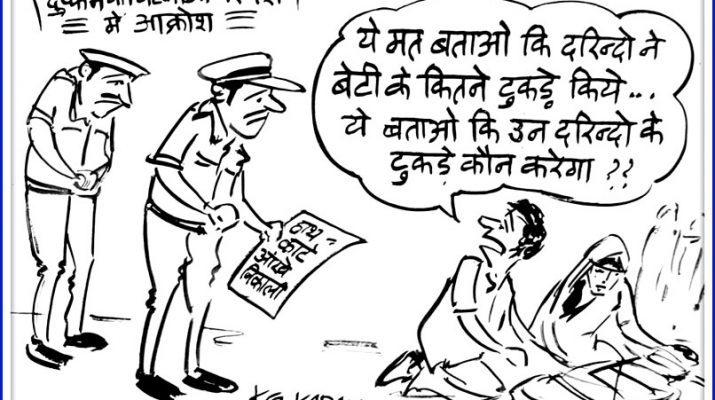 में आक्रोश
ये मत बताओ कि दरिन्दो ने
बेटी के कितने टुकड़े किये...
ये बताओ कि उन दरिन्दो के
टुकड़े कौन करेगा ??
हाथ
काटे
आंखे
निकाली